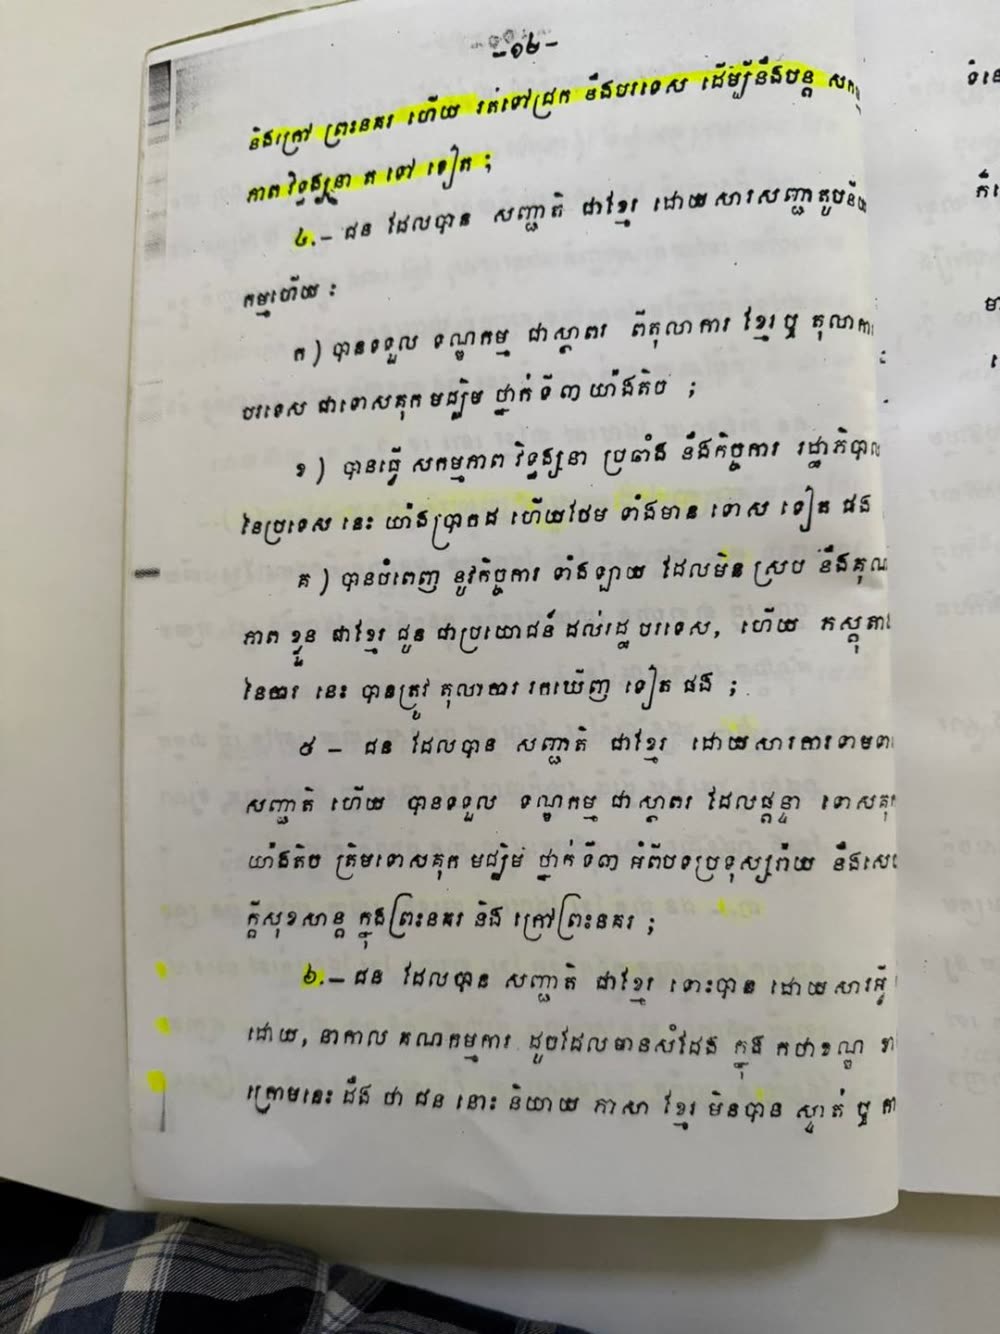 -១៤-
និងក្រៅ ព្រះនគរ ហើយ រត់ទៅជ្រក នឹងបរទេស ដើម្បីនឹងបន្ត សកម្ម
ភាព វិទ្ធង្សនា ត ទៅ ទៀត ;
៤.- ជន ដែលបាន សញ្ជាតិ ជាខ្មែរ ដោយសារសញ្ជាតូបនិយ
កម្មហើយ :
ក) បានទទួល ទណ្ឌកម្ម ជាស្ថាពរ ពីតុលាការ ខ្មែរឬ តុលាការ
បរទេស ជាទោសគុកមជ្ឈិម ថ្នាក់ទី៣ យ៉ាងតិច ;
ខ) បានធ្វើ សកម្មភាព វិទ្ធង្សនា ប្រឆាំង នឹងកិច្ចការ រដ្ឋាភិបាល
នៃប្រទេស នេះ យ៉ាងប្រាកដ ហើយថែម ទាំងមាន ទោស ទៀត ផង
គ) បានបំពេញ នូវកិច្ចការ ទាំងឡាយ ដែលមិន ស្រប នឹងគុណ
ភាព ខ្លួន ជាខ្មែរ ជូន ជាប្រយោជន៍ ដល់រដ្ឋ បរទេស, ហើយ ភស្តុតាង
នៃការ នេះ បានត្រូវ តុលាការ រកឃើញ ទៀត ផង ;
៥ - ជន ដែលបាន សញ្ជាតិ ជាខ្មែរ ដោយសារការទាមទារ
សញ្ជាតិ ហើយ បានទទួល ទណ្ឌកម្ម ជាស្ថាពរ ដែលផ្តន្ទា ទោសគុក
យ៉ាងតិច ត្រឹមទោសគុក មជ្ឈិម ថ្នាក់ ទី៣ អំពីបទប្រទុស្សរ៉ាយ នឹងសេច
ក្តីសុខសាន្ត ក្នុងព្រះនគរ និង ក្រៅព្រះនគរ ;
៦.- ជន ដែលបាន សញ្ជាតិ ជាខ្មែរ ទោះបាន ដោយសារអ្វី
ដោយ, នាកាល គណកម្មការ ដូចដែលមានសំដែង ក្នុង កថាខណ្ឌ ខាង
ក្រោមនេះ ដឹង ថា ជន នោះ និយាយ ភាសា ខ្មែរ មិនបាន ស្ទាត់ ឬ